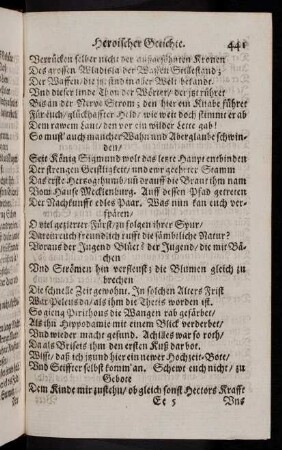 Heroischer Getichte. 441
Verrücken selber nicht der außgeführten Kronen
Des grossen Wladisla der Waffen Stillestand;
Der Waffen, die jetzund in aller Welt bekandt.
Und dieser linde Thon der Wörter, der jtzt rühret
Biß an der Nerve Strom; den hier ein Knabe führet
Für euch, glückhaffter Held, wie weit doch stimmt er ab
Dem rawem Laut, den vor ein wilder Lette gab!
So muß auch mancher Wahn und Aberglaube schwin-
den,
Seit König Sigmund wolt das letzte Haupt entbinden
Der strengen Geistligkeit, und ewr geehrter Stamm
Das erste Herzogthumb, und drauff die Braut ihm nam
Vom Hause Mecklenburg. Auff dessen Pfad getreten
Der Nachkunfft edles Paar. Was nun kan euch ver-
späten,
O viel gezierter Fürst, zu folgen ihrer Spur,
Da euch rufft freundlich rufft die sämbtliche Natur?
Voraus der Jugend Blüet? der Jugend, die mit Bä-
chen
Und Strömen hin verfleust; die Blumen gleich zu
brechen
Die schnelle Zeit gewohnt. In solchen Alters Frist
War Peleus da, als ihm die Thetis worden ist.
So gieng Pirithous die Wangen rab gefärbet,
Als ihn Hippodamie mit einem Blick verderbet,
Und wieder macht gesund. Achilles war so roth,
Da als Briseis ihm den ersten Kuß darbot.
Wißt, daß ich jtzund hier ein newer Hochzeit-Bote,
Und Stiffter selbst komm' an. Schewt euch nicht, zu
Gebote
Dem Kinde mir zustehn, ob gleich sonst Hectors Krafft
Ee 5 Uns